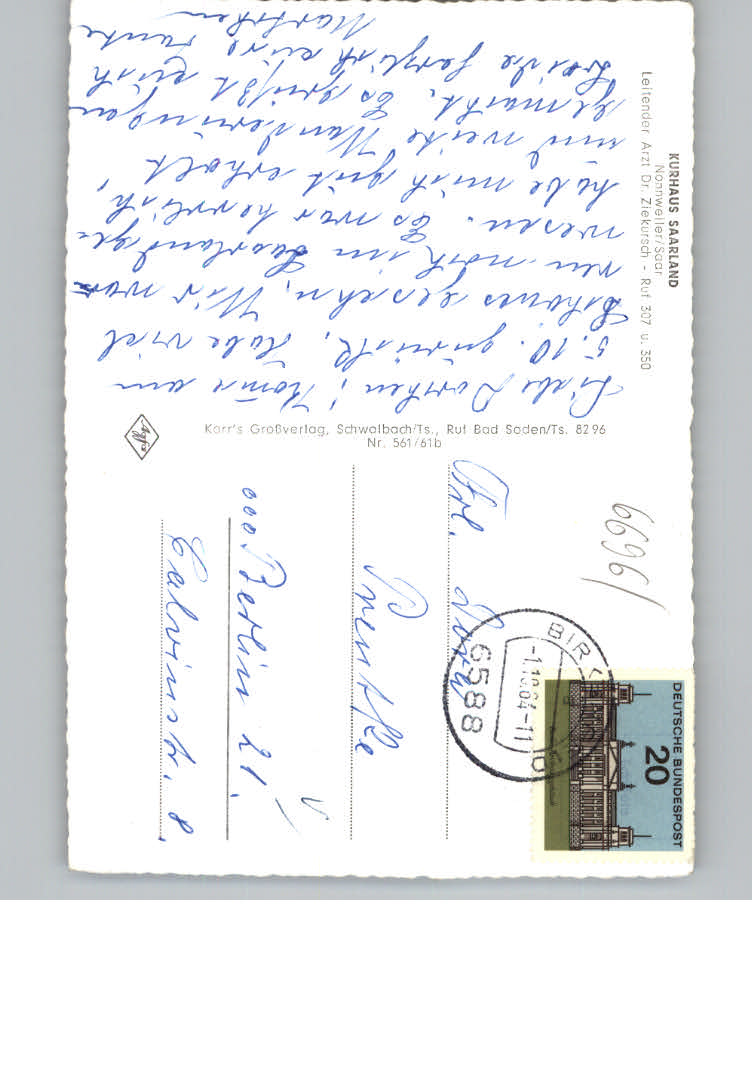 KURHAUS SAARLAND
Nonnweiler/Saar
Leitender Arzt Dr. Ziekursch - Ruf 307 u. 350
Liebe Dorchen! Komme am
5.10. zurück. Habe viel
Schönes gesehn. Wir wa-
ren noch im Saarland ge-
wesen. Es war herrlich,
habe mich gut erholt
und weite Wanderungen
gemacht. Es grüßt euch
beide herzlich eure Tante
Marthchen
Korr's Großverlag, Schwalbach/Ts., Ruf Bad Soden/Ts. 8296
Nr. 561/61b
Agfa
6696/
Frl. Dora
1000 Berlin 21.
Calvinstr. 8.
BIRKENFELD
-1.10.64-11
6588
DEUTSCHE BUNDESPOST
20